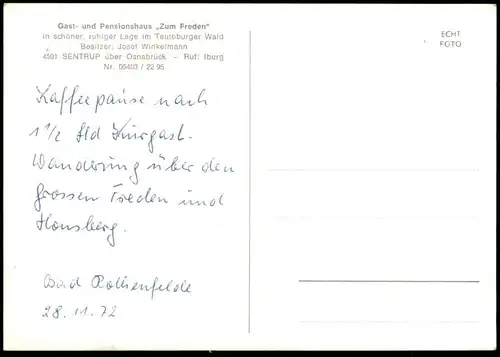 Gast- und Pensionshaus „Zum Freden"
in schöner, ruhiger Lage im Teutoburger Wald
Besitzer: Josef Winkelmann
4501 SENTRUP über Osnabrück – Ruf: Iburg
Nr. 05403 / 22 95
ECHT
FOTO
Kaffeepause nach
1 1/2 Std Kurgast-
Wanderung über den
grossen Freden und
Honsberg.
Bad Rothenfelde
28.11.72